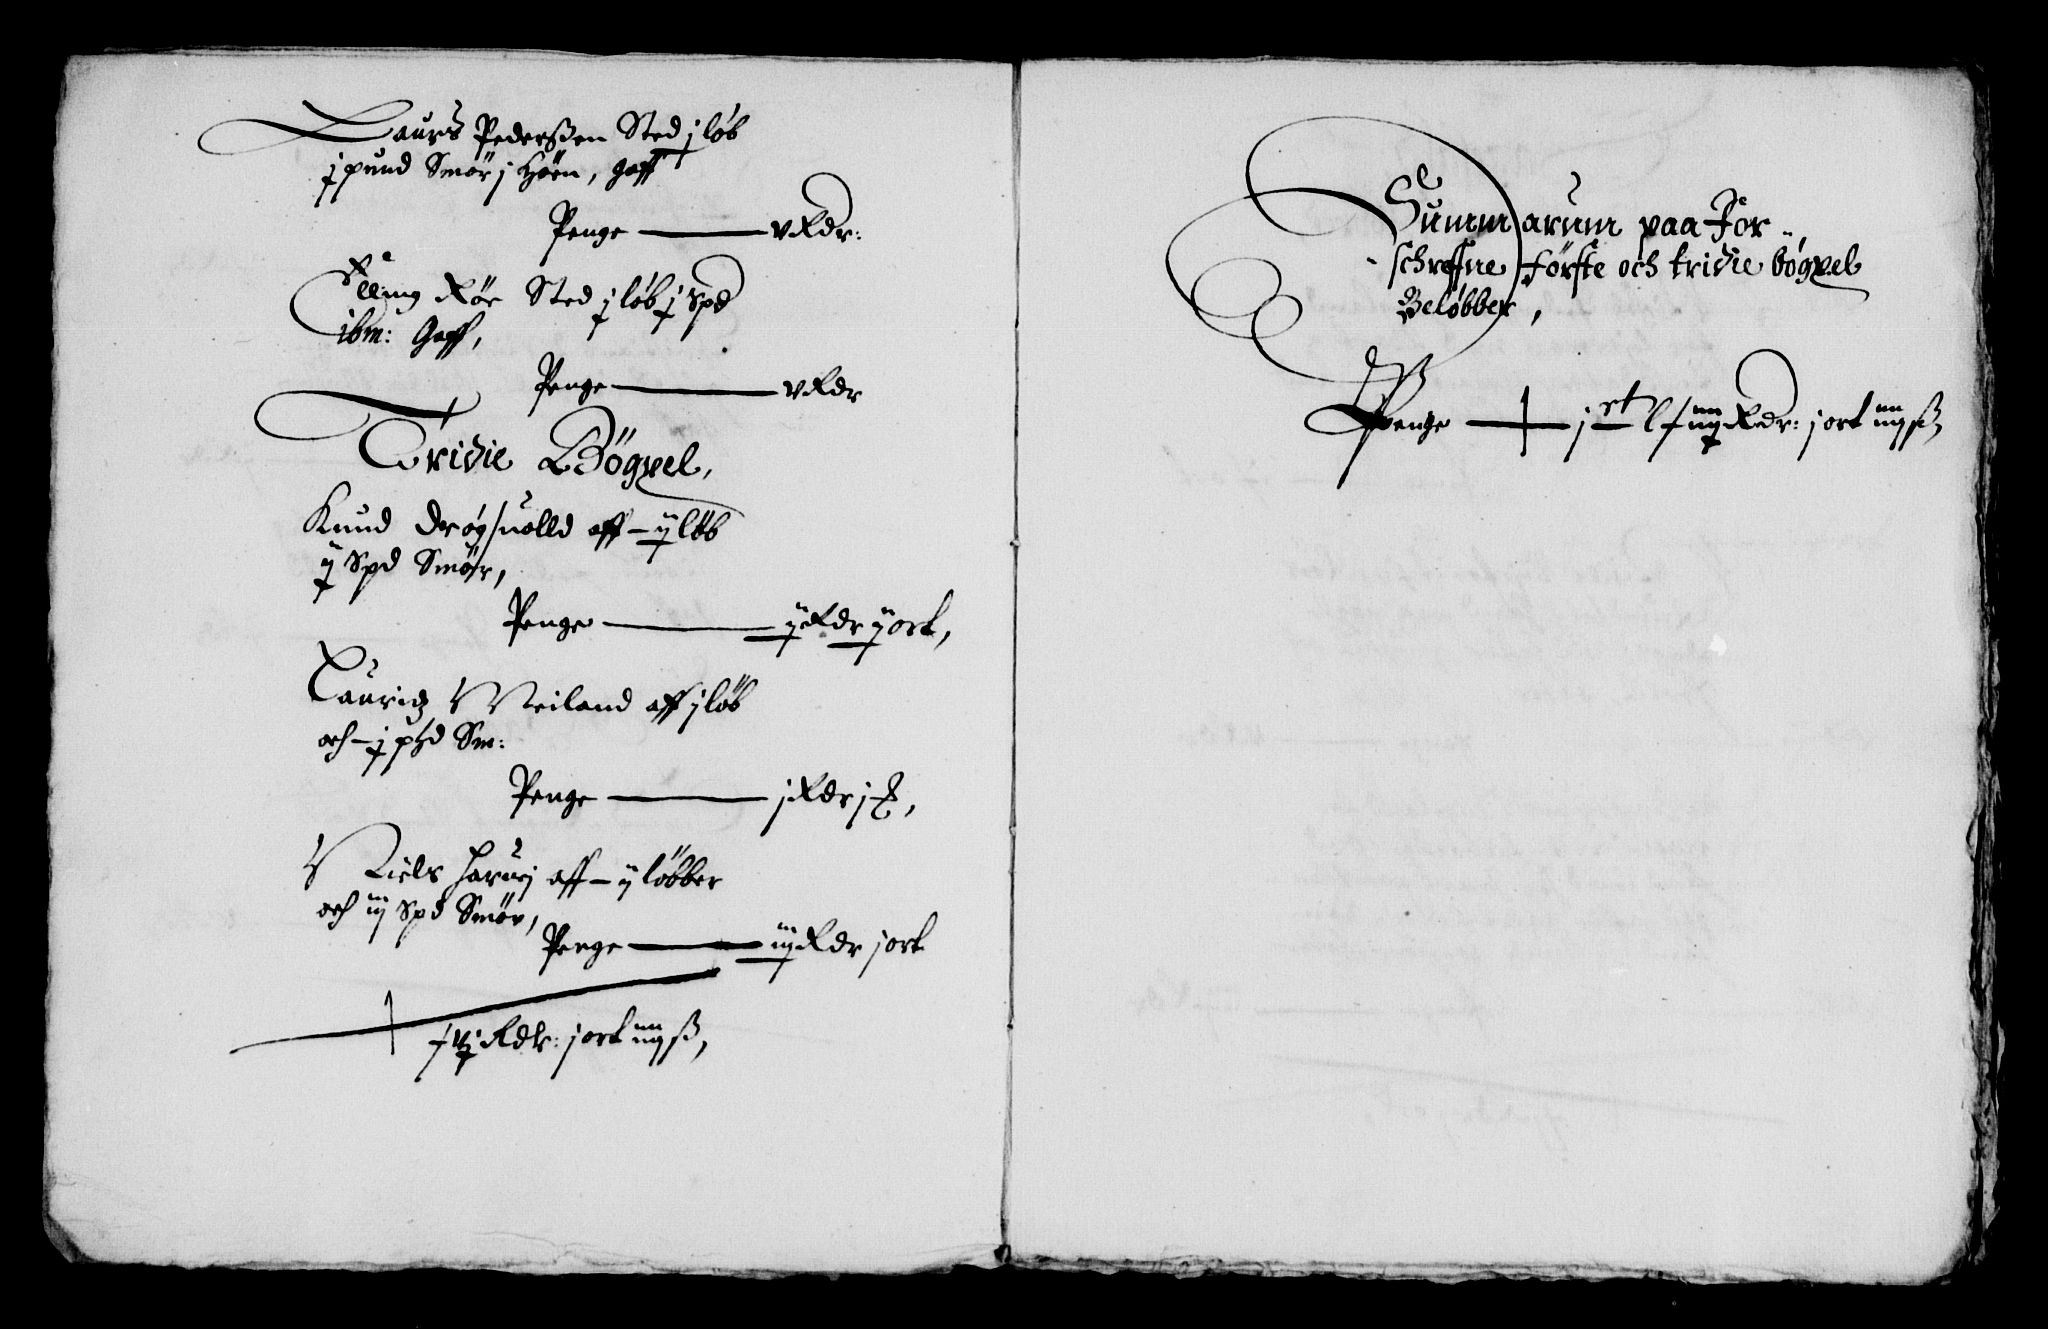 Laurs Pederßen Sted j løb
j pund Smør j Høen, gaff
Penge — v Rdr:
Elling Røe Sted j løb j Spd
ibm: Gaff,
Penge — v Rdr
Tridie Bögxel,
Knud Drøgsuolld aff — ij løb
ij Spd Smør,
Penge — ij Rdr ij ort,
Lauridz Meiland aff j løb
och — j pd Sm:
Penge — j Rdr j
Niels Haruej aff — ij løbber
och iij Spd Smør,
Penge — iij Rdr j ort
xvj Rdr: j ort iiij ß,
Summarum paa For-
schreffne förste och tridie bögxel
Beløbber,
Penge — j
Rdr: j ort iiij ß,